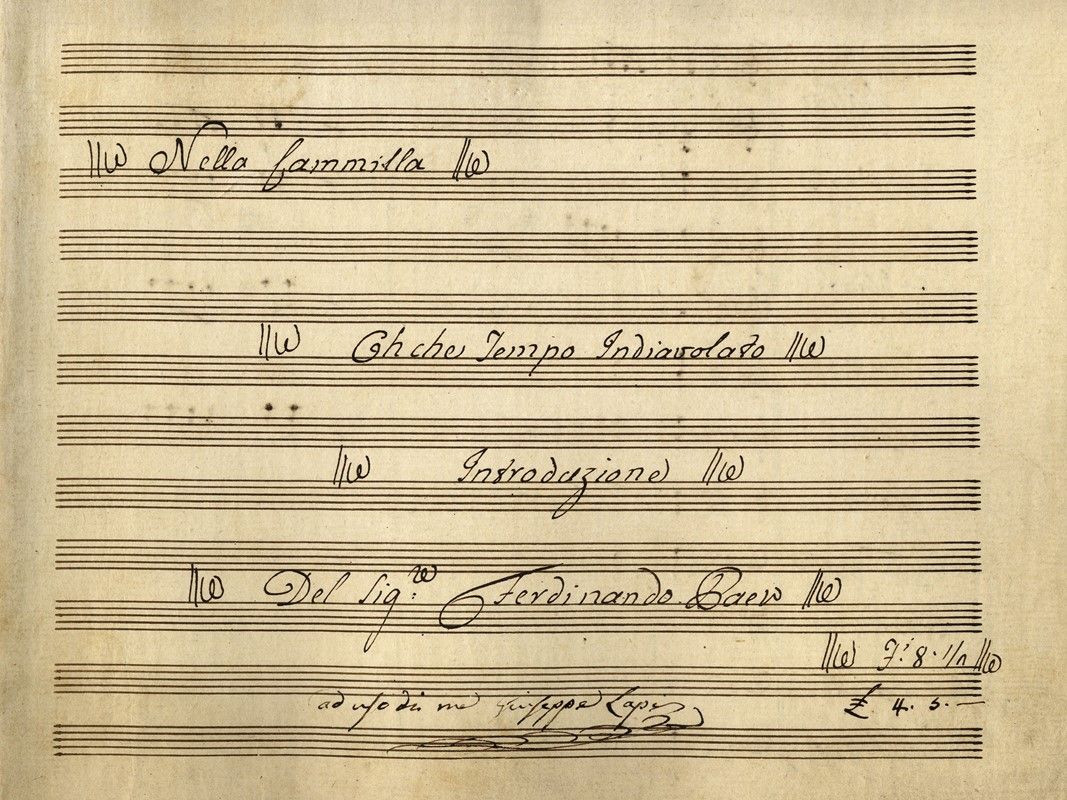 Nella Cammilla
Eh che Tempo Indiavolato
Introduzione
Del Sig:re Ferdinando Paer
F.i 8. 1/2
£ 4. 5. —
ad uso di me Giuseppe Lapi